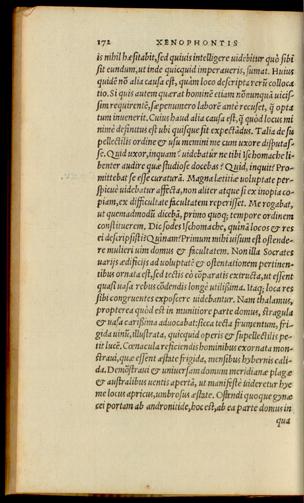 172 XENOPHONTIS
is nihil hæsitabit, sed quiuis intelligere uidebitur quò sibi
sit eundum, ut inde quicquid imperaueris, sumat. Huius
quidē nō alia causa est, quàm loco descripta rerū colloca
tio. Si quis autem quærat hominē etiam nōnunquā uicis-
sim requirentē, sæpenumero laborē antè recuset, q̄ optā
tum inuenerit. Cuius haud alia causa est, q̄ quòd locus mi
nimè definitus est ubi quisque sit expectādus. Talia de su
pellectilis ordine & usu memini me cum uxore disputas-
se. Quid uxor, inquam? uidebatur ne tibi Ischomache li-
benter audire quæ studiose docebas? Quid, inquit? Pro-
mittebat se esse curaturā. Magna lætitia uoluptate per-
spicuè uidebatur affecta, non aliter atque si ex inopia co-
piam, ex difficultate facultatem reperisset. Me rogabat,
ut quemadmodū dicebā, primo quoq; tempore ordinem
constituerem. Dic sodes Ischomache, quinā locos & res
ei descripsisti? Quinam? Primum mihi uisum est ostende-
re mulieri uim domus & facultatem. Non illa Socrates
uarijs ædificijs ad uoluptatē & ostentationem pertinen-
tibus ornata est, sed tectis eò cōparatis extructa, ut essent
quasi uasa rebus cōdendis longè utilißima. Itaq; loca res
sibi congruentes exposcere uidebantur. Nam thalamus,
propterea quòd est in munitiore parte domus, stragula
& uasa carißima aduocabat: sicca tecta frumentum, fri-
gida uinū, illustrata, quicquid operis & supellectilis pe-
tit lucē. Cœnacula reficiendis hominibus exornata mon-
straui, quæ essent æstate frigida, mensibus hybernis cali-
da. Demōstraui & uniuersam domum meridianæ plagæ
& australibus uentis apertā, ut manifestè uideretur hye
me locus apricus, umbrosus æstate. Ostendi quoque gynæ
cei portam ab andronitide, hoc est, ab ea parte domus in
qua